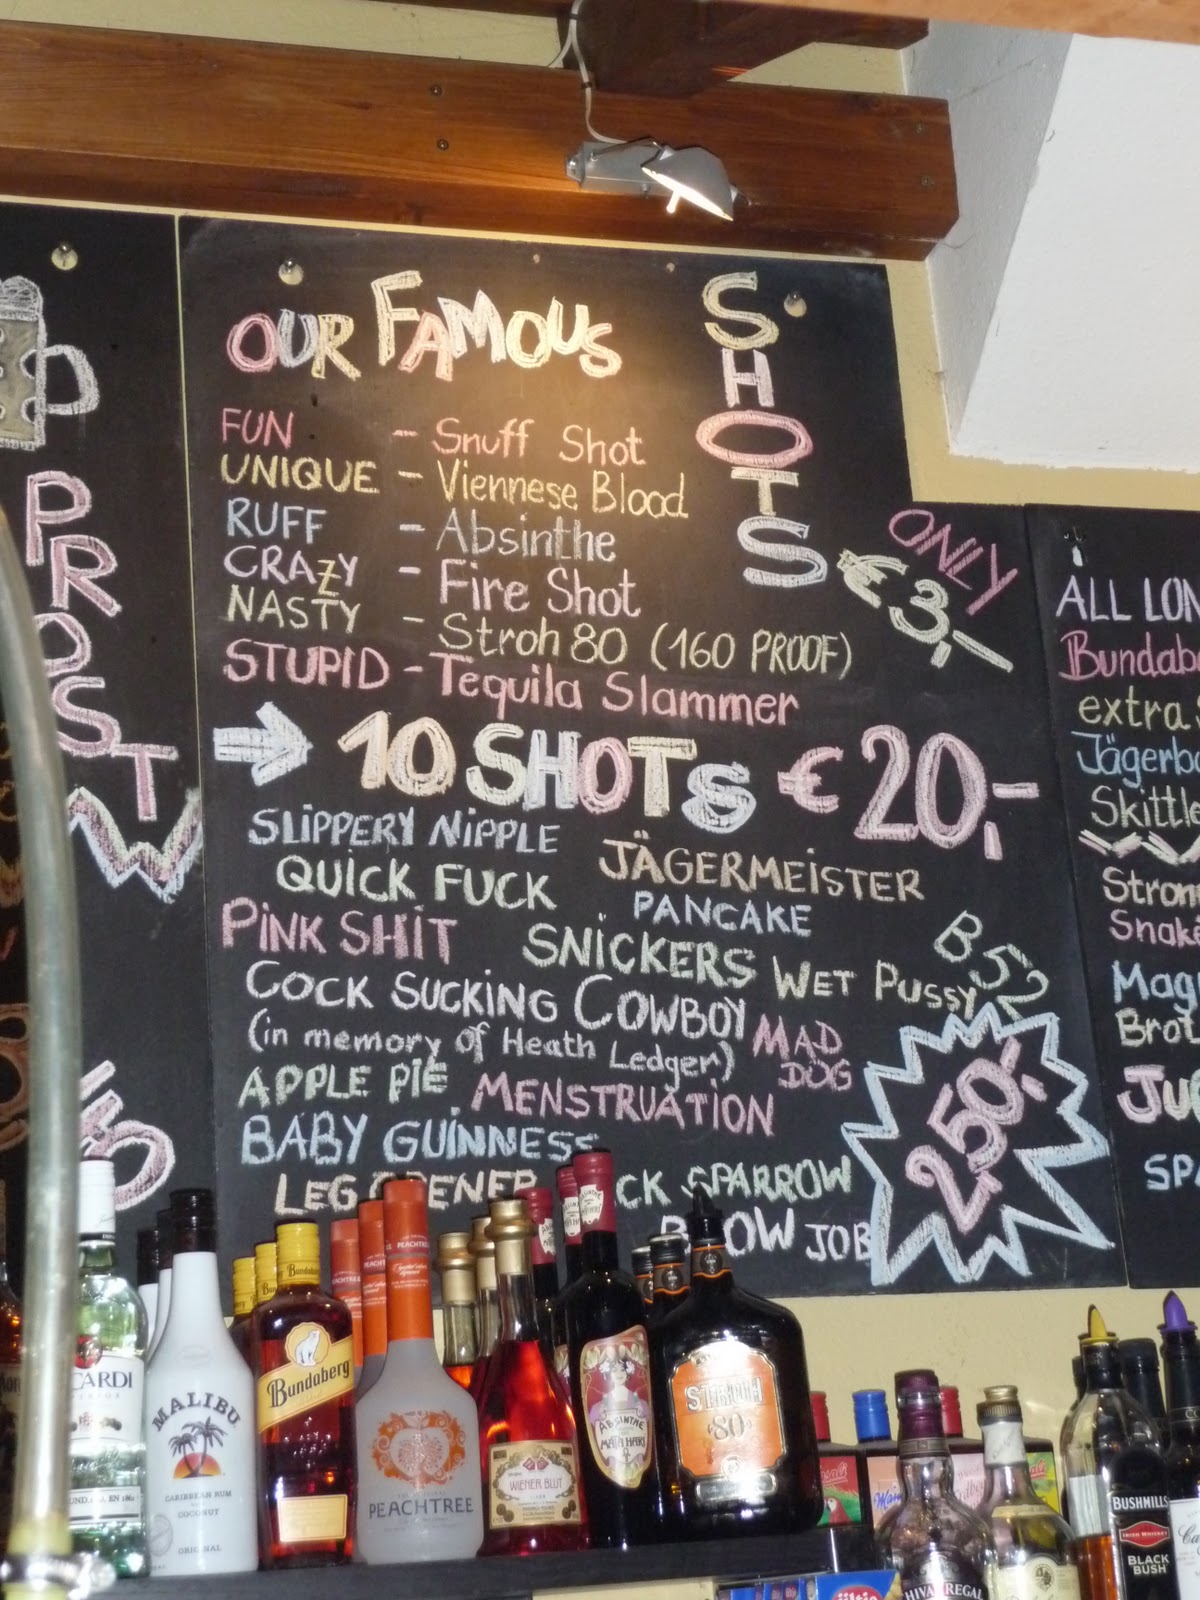 PROST
OUR FAMOUS SHOTS
FUN - Snuff Shot
UNIQUE - Viennese Blood
RUFF - Absinthe
CRAZY - Fire Shot
NASTY - Stroh 80 (160 PROOF)
STUPID - Tequila Slammer
ONLY
€ 3,-
10 SHOTS € 20,-
SLIPPERY NIPPLE
JÄGERMEISTER
QUICK FUCK
PANCAKE
PINK SHIT
SNICKERS
WET PUSSY
B52
COCK SUCKING COWBOY
(in memory of Heath Ledger)
MAD DOG
APPLE PIE
MENSTRUATION
2,50,-
BABY GUINNESS
LEG OPENER
CK SPARROW
BLOW JOB
ALL LON
Bundabe
extra
Jägerbo
Skittle
Stron
Snake
Mag
Brot
JUG
SPA
CARDI
MALIBU
CARIBBEAN RUM
WITH
COCONUT
ORIGINAL
Bundaberg
PEACHTREE
PEACHTREE
WIENER BLUT
ABSINTHE
MATA HARI
STROH
80
CHIVAS REGAL
BUSHMILLS
IRISH WHISKEY
BLACK
BUSH